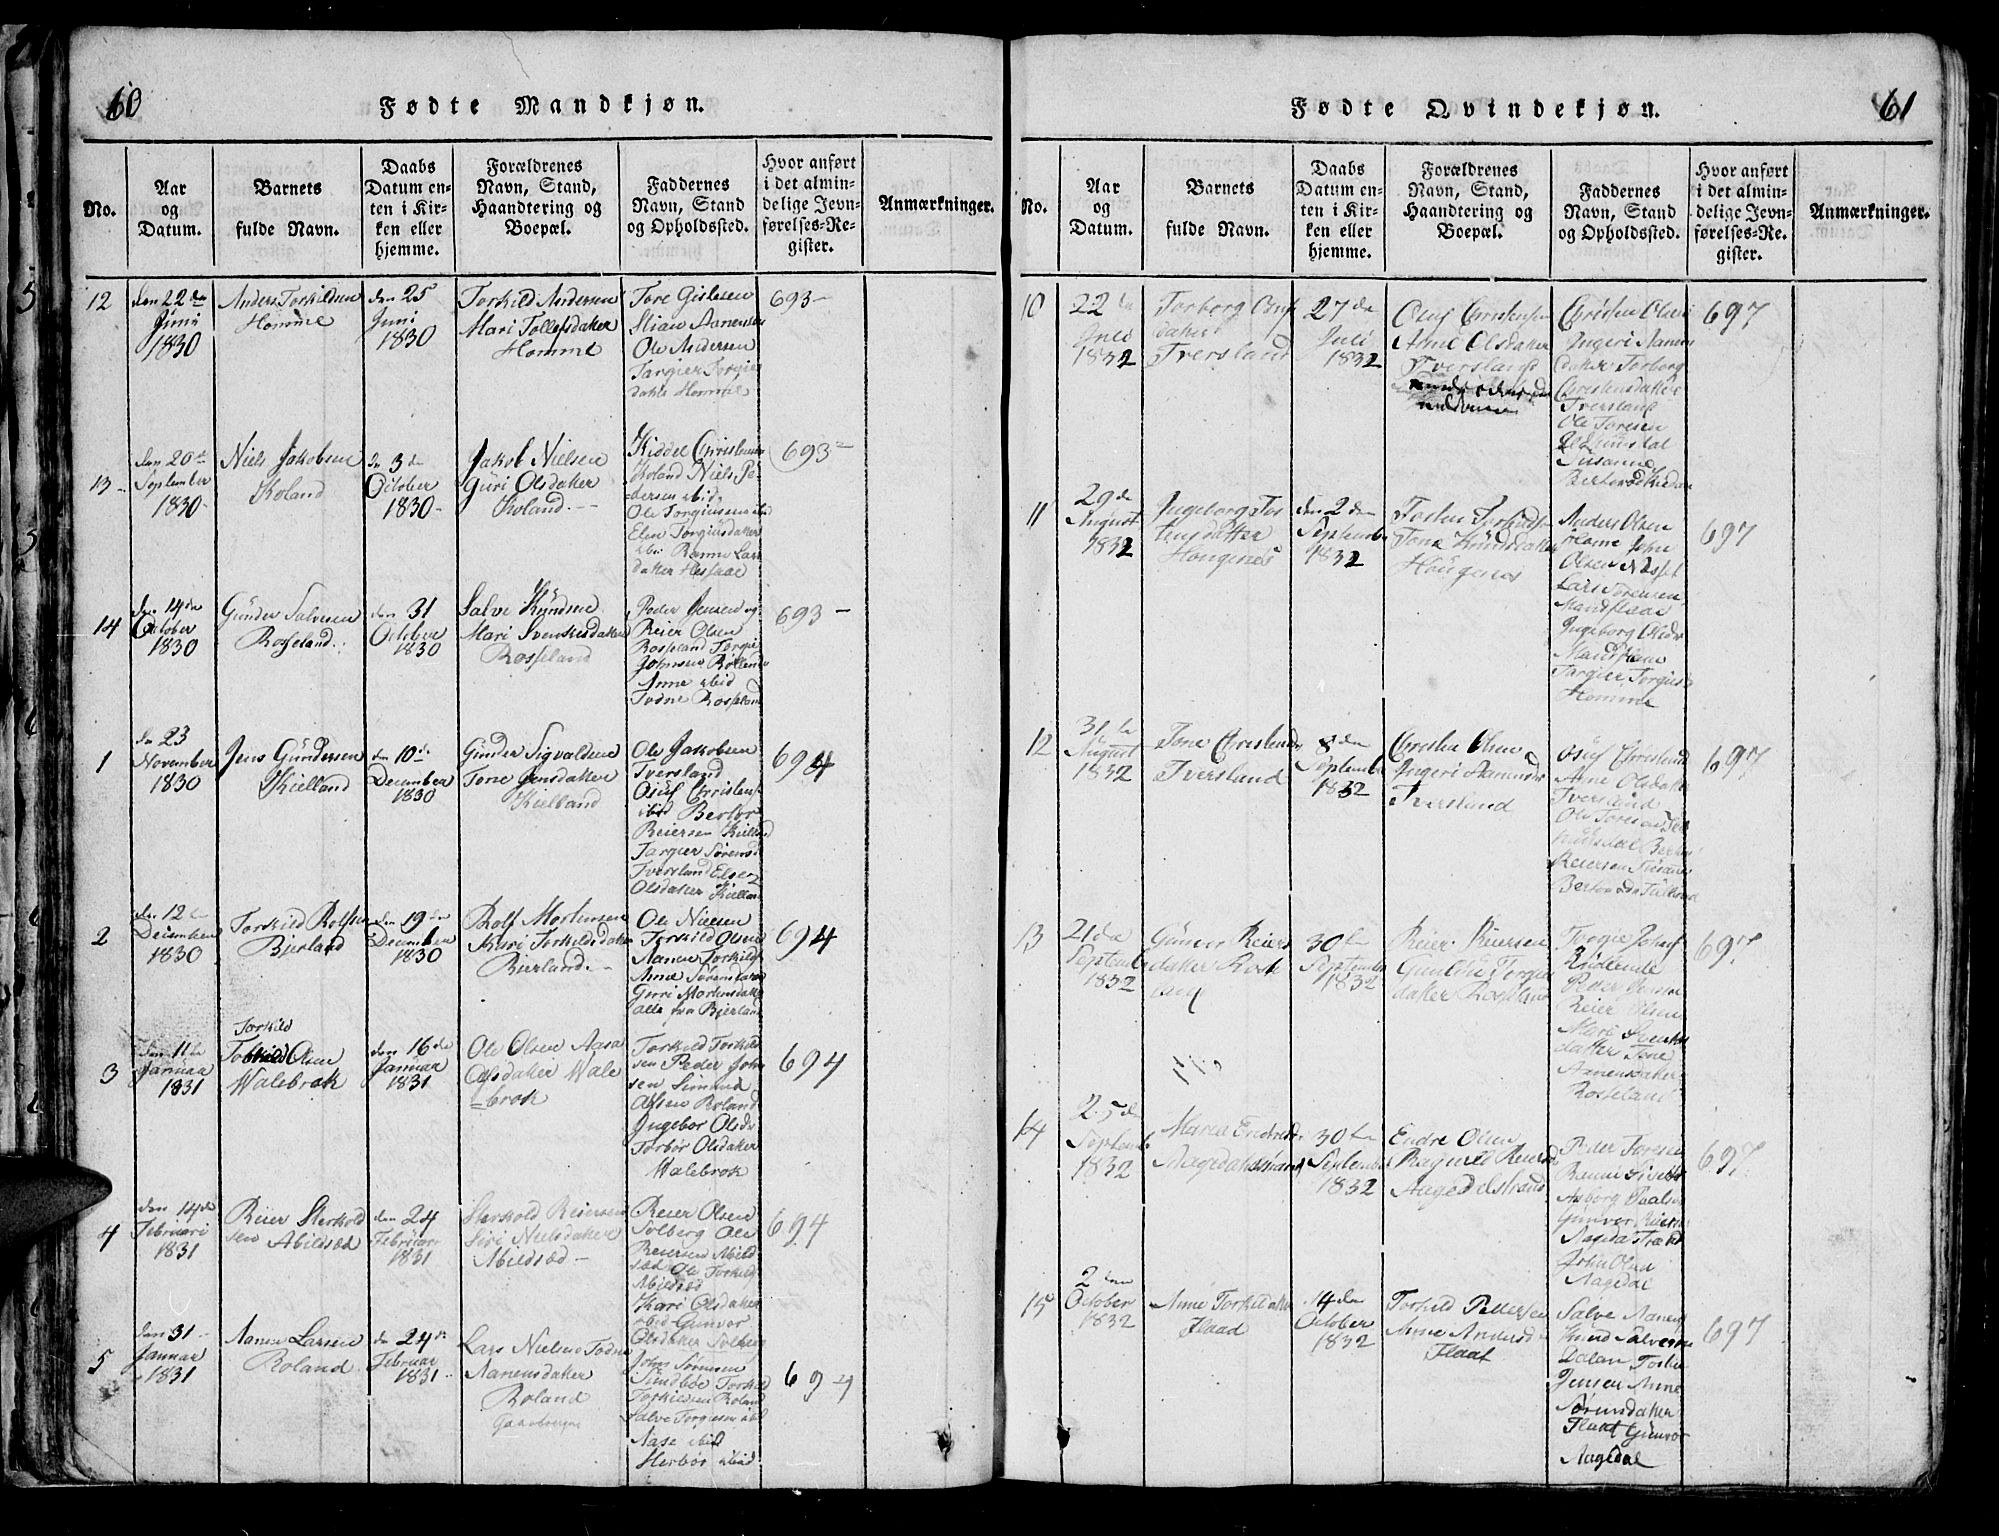 60
Fødte Mandkjøn.
No.
Aar
og
Datum.
Barnets
fulde Navn.
Daabs
Datum en-
ten i Kir-
ken eller
hjemme.
Forældrenes
Navn, Stand,
Haandtering og
Boepæl.
Faddernes
Navn, Stand
og Opholdssted.
Hvor anført
i det almin-
delige Jevn-
førelses-Re-
gister.
Anmærkninger.
12
den 22de
Juni
1830
Anders Torkildsen
Homme
den 25
Juni
1830
Torkild Andersen
Mari Tollefsdatter
Homme
Tore Gislesen
Stian Aanensen
Ole Andersen
Targier Torgies
datter Homme
693
13
den 20de
September
1830
Niels Jakobsen
Koland
den 3de
October
1830
Jakob Nielsen
Guri Olsdatter
Koland
Kiddel Christensen
Koland Niels Pe-
dersen ibid
Ole Torgiusen ibid
Elen Torgiusdatter
ibid Ranne Lars
datter Hessaae
693
14
den 14de
October
1830
Günder Salvesen
Rosseland
den 31
October
1830
Salve Knudsen
Mari Svenkesdatter
Rosseland
Peder Jensen og
Reier Olsen
Rosseland Torgie
Johnsen
Anne ibid
Todne Rosseland
693
1
den 23
November
1830
Jens Gündersen
Kielland
den 10de
December
1830
Günder Sigvaldsen
Tone Jensdatter
Kielland
Ole Jakobsen
Tversland
Osuf Christens
ibid Berthor
Reiersen Kielland
Targier Sørensd
Tversland Else
Olsdatter Kielland
694
2
den 12te
December
1830
Torkild Rolfsen
Bierland
den 19de
December
1830
Rolf Mortensen
Kari Torkildsdatter
Bierland
Ole Nielsen
Torkild Olsen
Aanen Torkilds
Anne Sørensdatter
Guri Mortensdatter
alle fra Bierland
694
3
den 11te
Januar
1831
Torkild
Olsen
Walebrok
den 16de
Januar
1831
Ole Olsen Aasa
Olsdatter Wale
brok
Torkild Torkild
sen Peder John
sen Simund
Olsen Roland
Ingebor Olsd
Torbor Olsdatter
Walebrok
694
4
den 14de
Februari
1831
Reier Sterkold
sen Abildsæd
den 24
Februar
1831
Sterkold Reiersen
Siri Nielsdatter
Abildsæd
Reier Olsen
Solberg Ole
Reiersen Abild
sæd Ole Torkilds
Abildsæd
Kari Olsdatter
ibid Gunvor
Olsdatter Solberg
694
5
den 31
Januar
1831
Aanen Larsen
Roland
den 24de
Februar
1831
Lars Nielsen Todne
Aanensdatter
Roland
John Sørensen
Sundbøe Torkild
Torkildsen Roland
Salve Torgiesen ibid
Aase ibid
Herbor ibid
694
61
Fødte Qvindekjøn.
No.
Aar
og
Datum.
Barnets
fulde Navn.
Daabs
Datum en-
ten i Kir-
ken eller
hjemme.
Forældrenes
Navn, Stand,
Haandtering og
Boepæl.
Faddernes
Navn, Stand
og Opholdssted.
Hvor anført
i det almin-
delige Jevn-
førelses-Re-
gister.
Anmærkninger.
10
22de
Juli
1832
Torborg Osuf
datter
Tversland
27de
Juli
1832
Osuf Christensen
Anne Olsdatter
Tversland
Christen Olsen
Ingeri Aanens
datter Torborg
Christensdatter
Tversland
Ole Toresen
Susanne
697
11
29de
August
1832
Ingeborg Tos
tensdatter
Hougenes
den 2den
September
1832
Tosten Torkilds
Tone Knudsdatter
Hougenes
Anders Olsen
Homme John
Olsen
Lars Torensen
Mandflaae
Ingeborg
Mandflaae
Targier Torgius
Homme
697
12
31te
August
1832
Tone Christensd
Tversland
8de
September
1832
Christen Olsen
Ingeri Aanensdr
Tversland
Osuf Christens
Anne Olsdatt
Tversland
Ole Toresen
Reiersen Susanne
697
13
21de
September
1832
Günvor Reiers
datter Ross
land
30te
September
1832
Reier Reiersen
Gunild Torgies
datter Rosseland
Torgie Johns
Peder Jensen
Reier Olsen
Mari Svenkes
datter Tone
Aanensdatter
Rosseland
697
14
25de
Septemb
1832
Maren Endresdr
Aagedalstrand
30te
September
1832
Endre Olsen
Ragnild Reiersd
Aagedalstrand
Peder Toresen
Aaborg
Günver Reiers
Aagedalstrand
John Olsen
Aagedal
697
15
2den
October
1832
Anne Torkildsdatter
Flaad
14de
October
1832
Torkild Pedersen
Anne Andersd
Flaat
Salve Aanens
Knud Salvesen
Dalan Tosten
Jensen Anne
Sørensdatter
Flaat Günvor
Aagedal
697